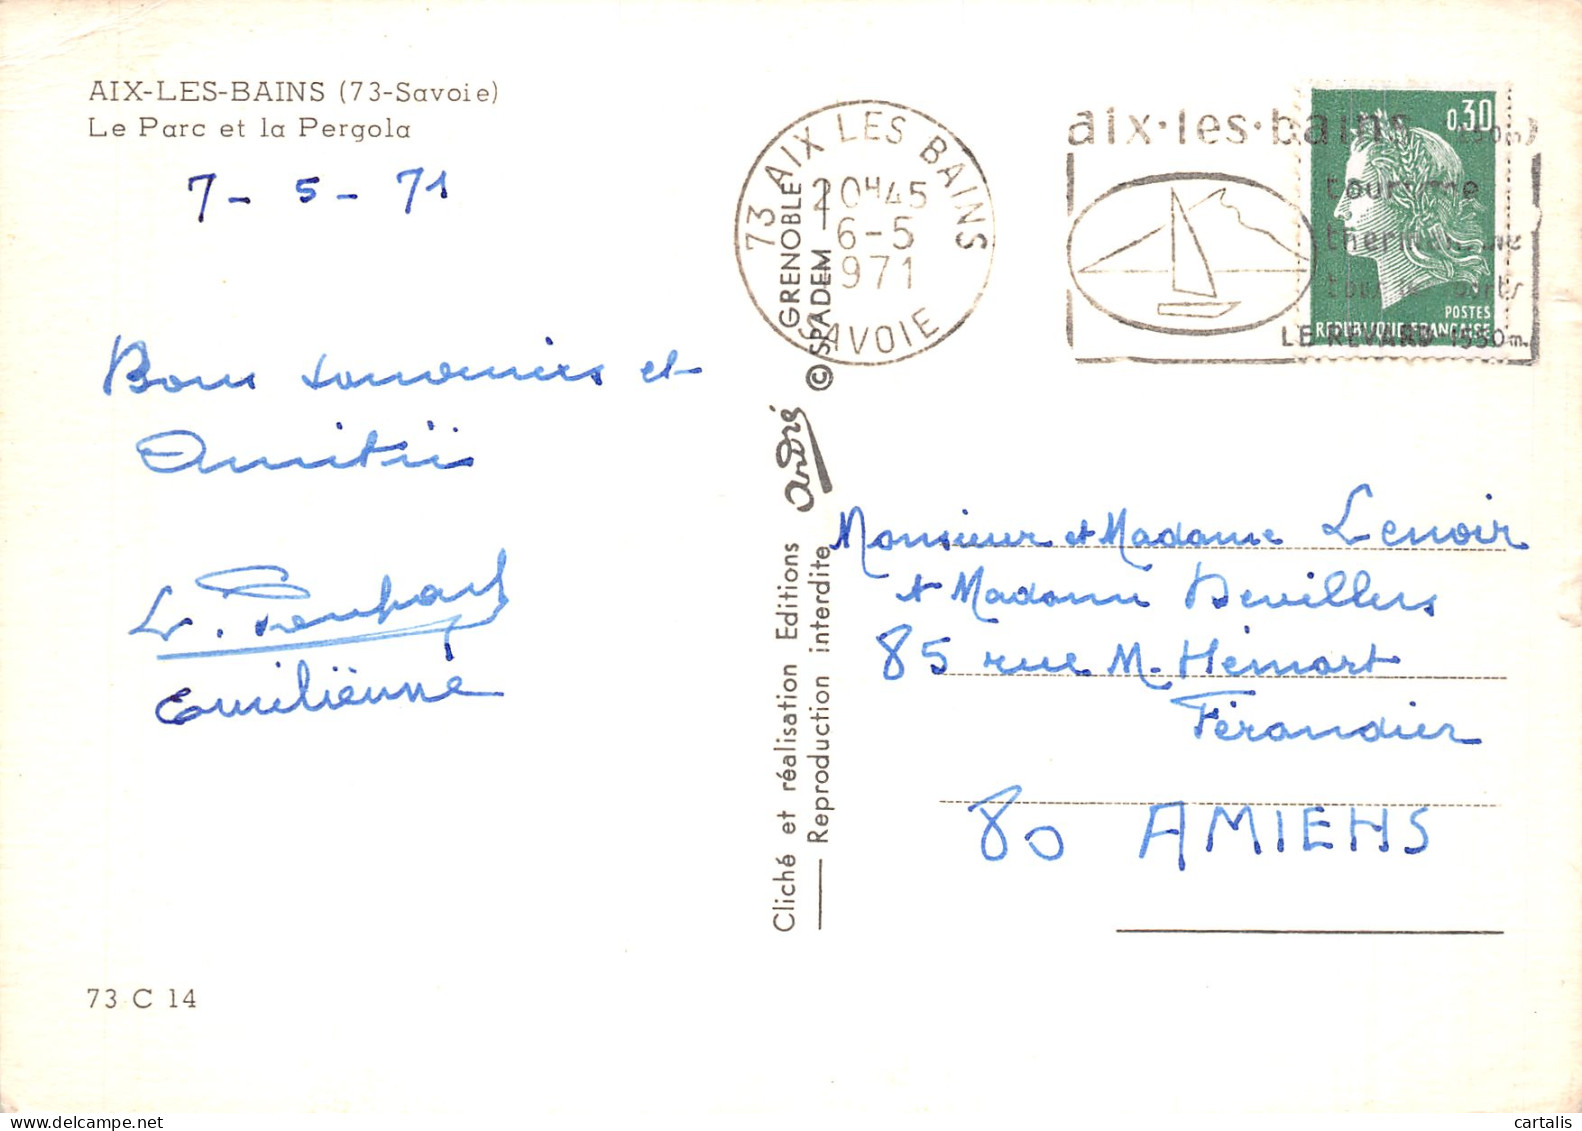 AIX-LES-BAINS (73-Savoie)
Le Parc et la Pergola
7 - 5 - 71
Bons souvenirs et
Amitiés
Emilienne
73 C 14
GRENOBLE
© SPADEM
André
Cliché et réalisation Editions
Reproduction interdite
73 AIX LES BAINS
20H45
6-5
1971
SAVOIE
aix·les·bains
tourisme
thermalisme
tous les sports
LE REVARD 1550m.
0,30
POSTES
REPUBLIQUE FRANÇAISE
Monsieur et Madame Lenoir
et Madame Devillers
85 rue M. Hémart
Férandier
80 AMIENS
cartalis